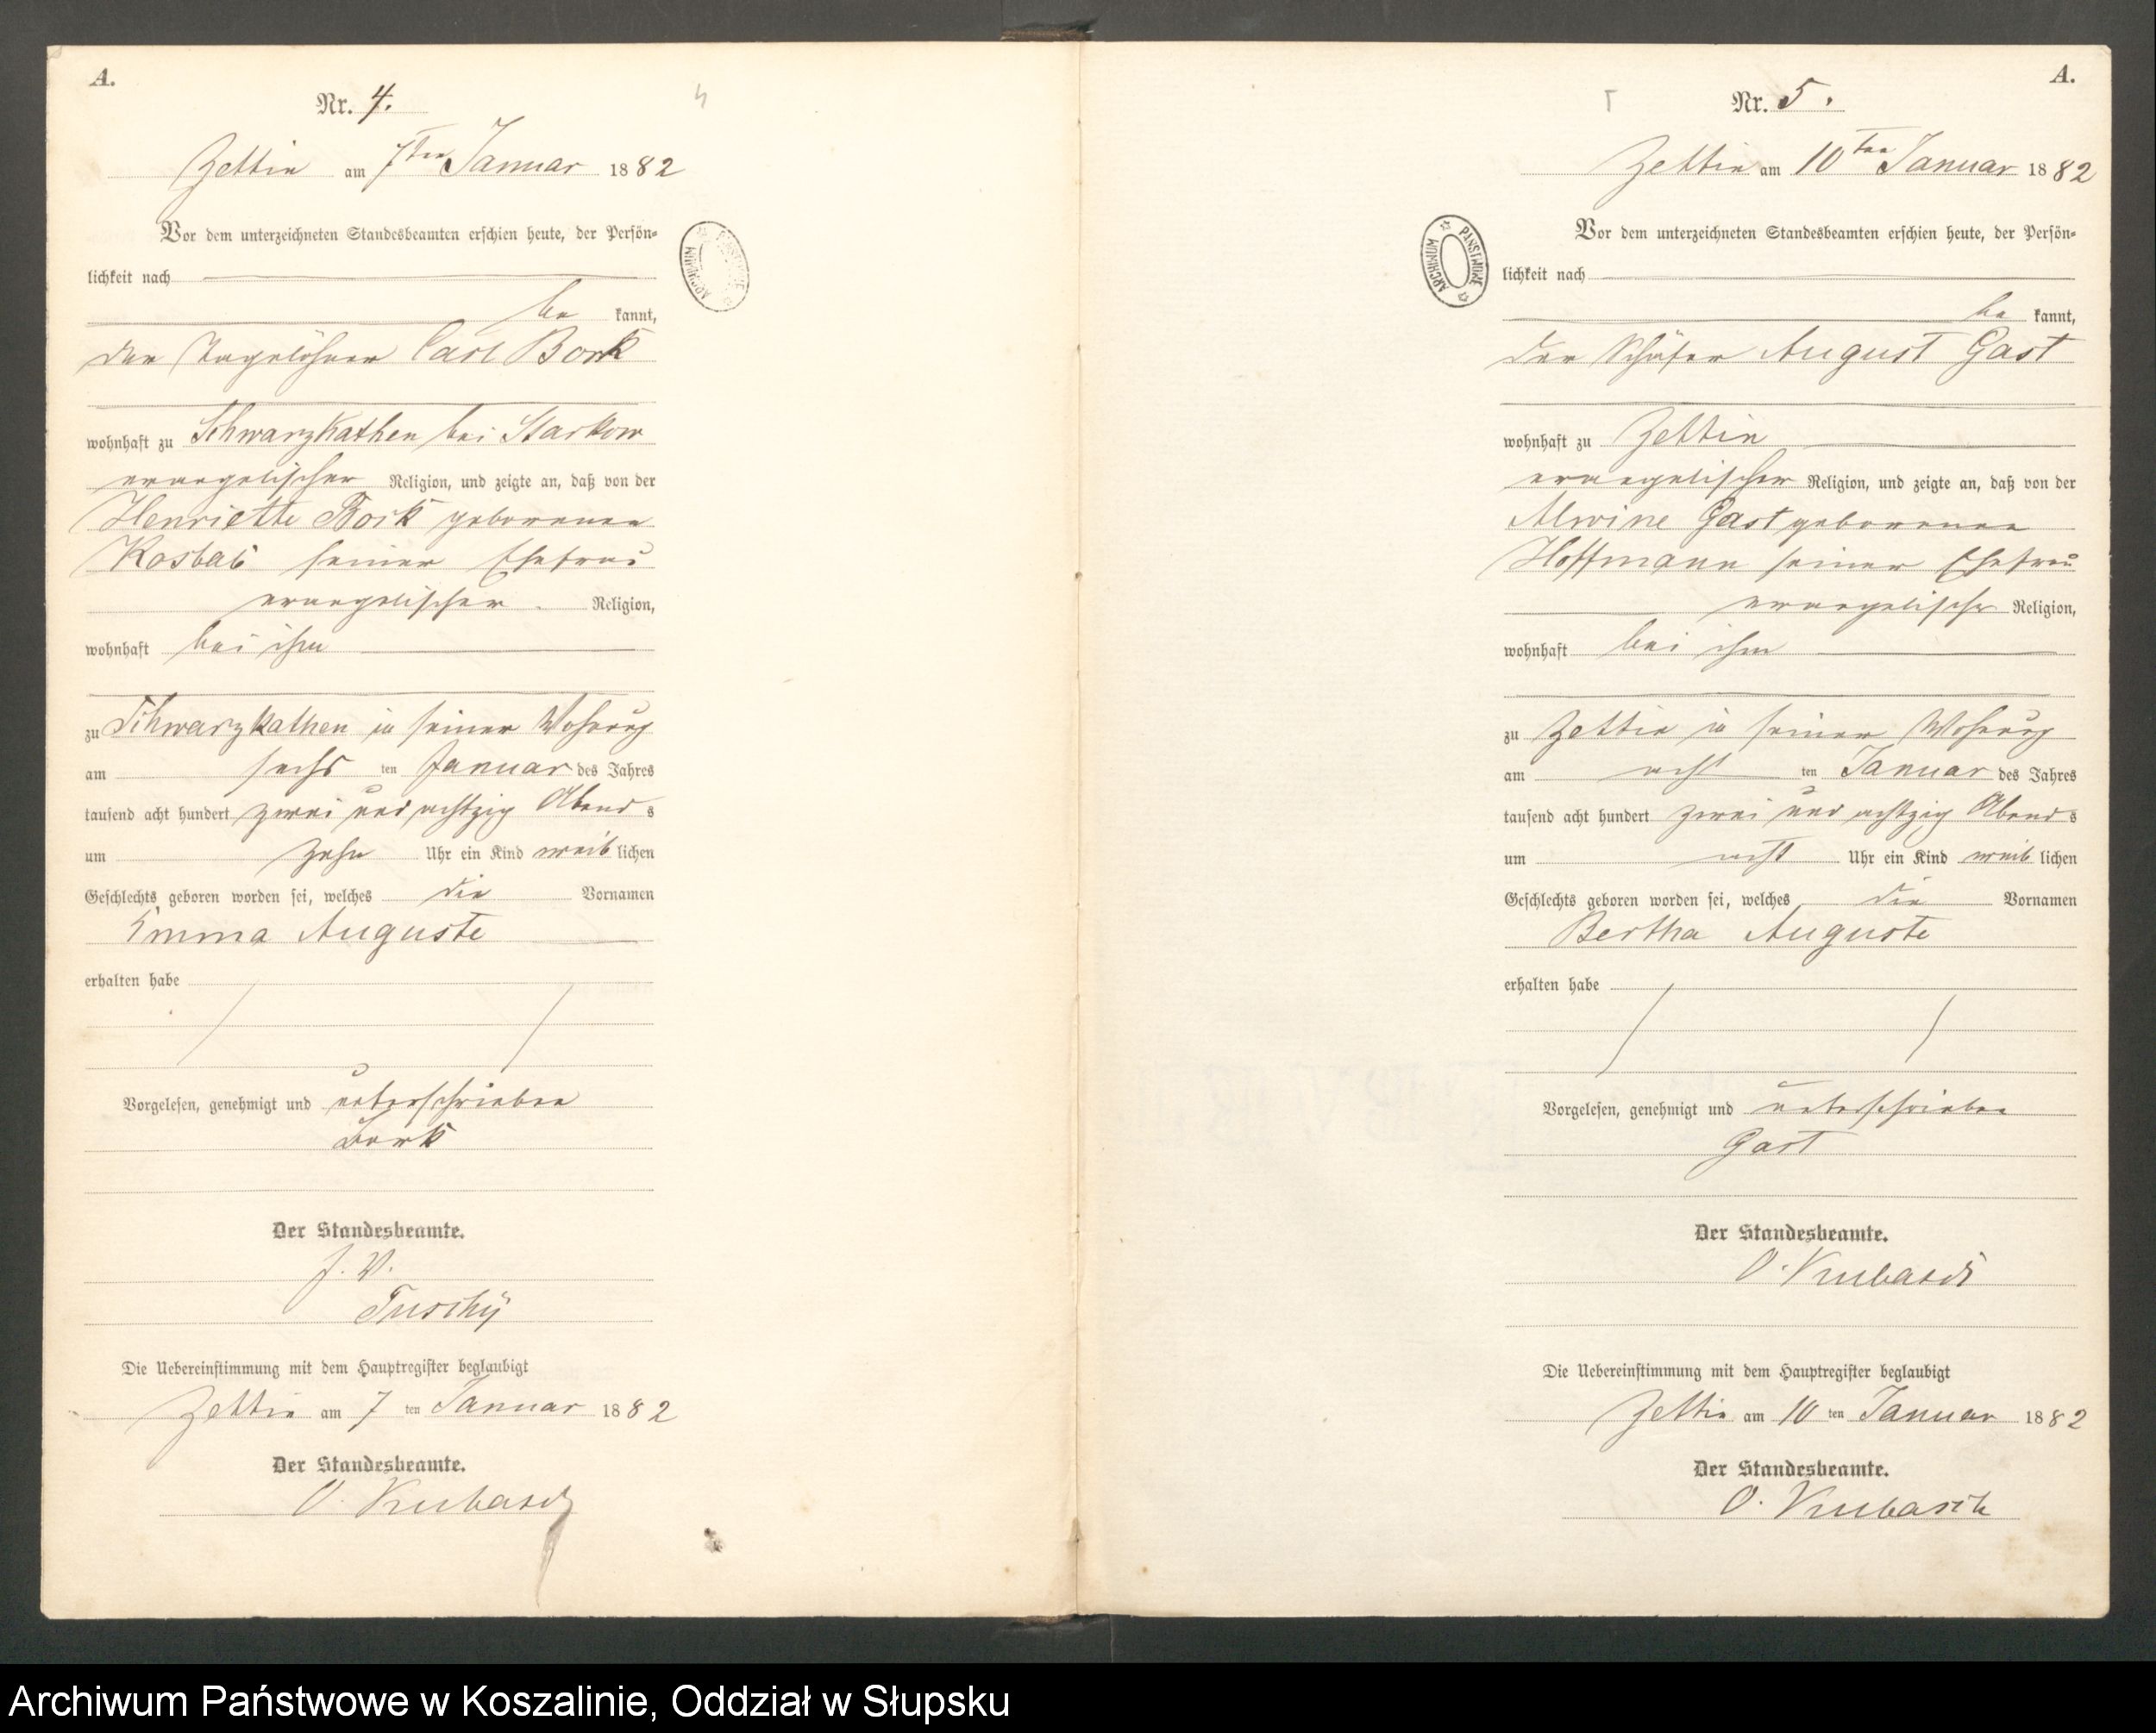 A.
Nr. 4.
Zettin am 7ten Januar 1882
Vor dem unterzeichneten Standesbeamten erschien heute, der Persön-
lichkeit nach
be kannt,
der Tagelöhner Carl Bork
wohnhaft zu Schwarzkathen bei Starkow
evangelischer Religion, und zeigte an, daß von der
Henriette Bork geborenen
seiner Ehefrau
evangelischer Religion,
wohnhaft bei ihm
zu Schwarzkathen in seiner Wohnung
am sechs ten Januar des Jahres
tausend acht hundert zwei und achtzig Abend s
um zehn Uhr ein Kind weib lichen
Geschlechts geboren worden sei, welches die Vornamen
Emma Auguste
erhalten habe
Vorgelesen, genehmigt und unterschrieben
Bork
Der Standesbeamte.
J. V.
Tuschÿ
Die Uebereinstimmung mit dem Hauptregister beglaubigt
Zettin am 7 ten Januar 1882
Der Standesbeamte.
O. Kubasch
A.
Nr. 5.
Zettin am 10ten Januar 1882
Vor dem unterzeichneten Standesbeamten erschien heute, der Persön-
lichkeit nach
be kannt,
der Schäfer August Gast
wohnhaft zu Zettin
evangelischer Religion, und zeigte an, daß von der
Alwine Gast geborenen
Hoffmann seiner Ehefrau
evangelischer Religion,
wohnhaft bei ihm
zu Zettin in seiner Wohnung
am acht ten Januar des Jahres
tausend acht hundert zwei und achtzig Abend s
um acht Uhr ein Kind weib lichen
Geschlechts geboren worden sei, welches die Vornamen
Bertha Auguste
erhalten habe
Vorgelesen, genehmigt und unterschrieben
Gast
Der Standesbeamte.
O. Kubasch
Die Uebereinstimmung mit dem Hauptregister beglaubigt
Zettin am 10 ten Januar 1882
Der Standesbeamte.
O. Kubasch
ARCHIWUM PAŃSTWOWE
Archiwum Państwowe w Koszalinie, Oddział w Słupsku